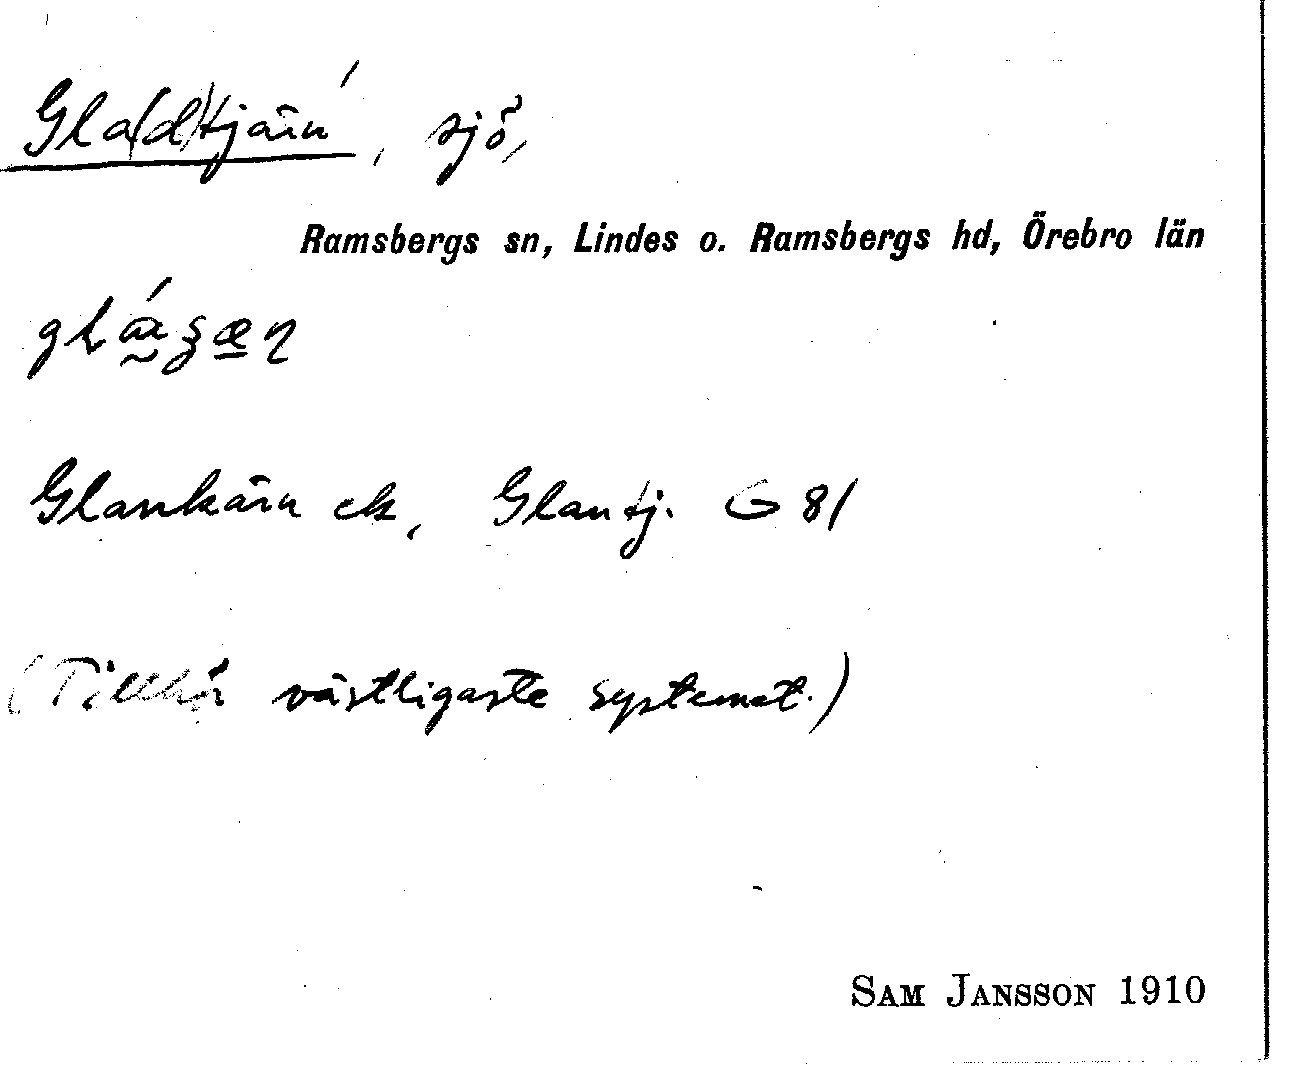 Gla(d)tjärn, sjö,
Ramsbergs sn, Lindes o. Ramsbergs hd, Örebro län
Glankärn ek, Glantj. G 81
(Tillhör västligaste systemet.)
SAM JANSSON 1910